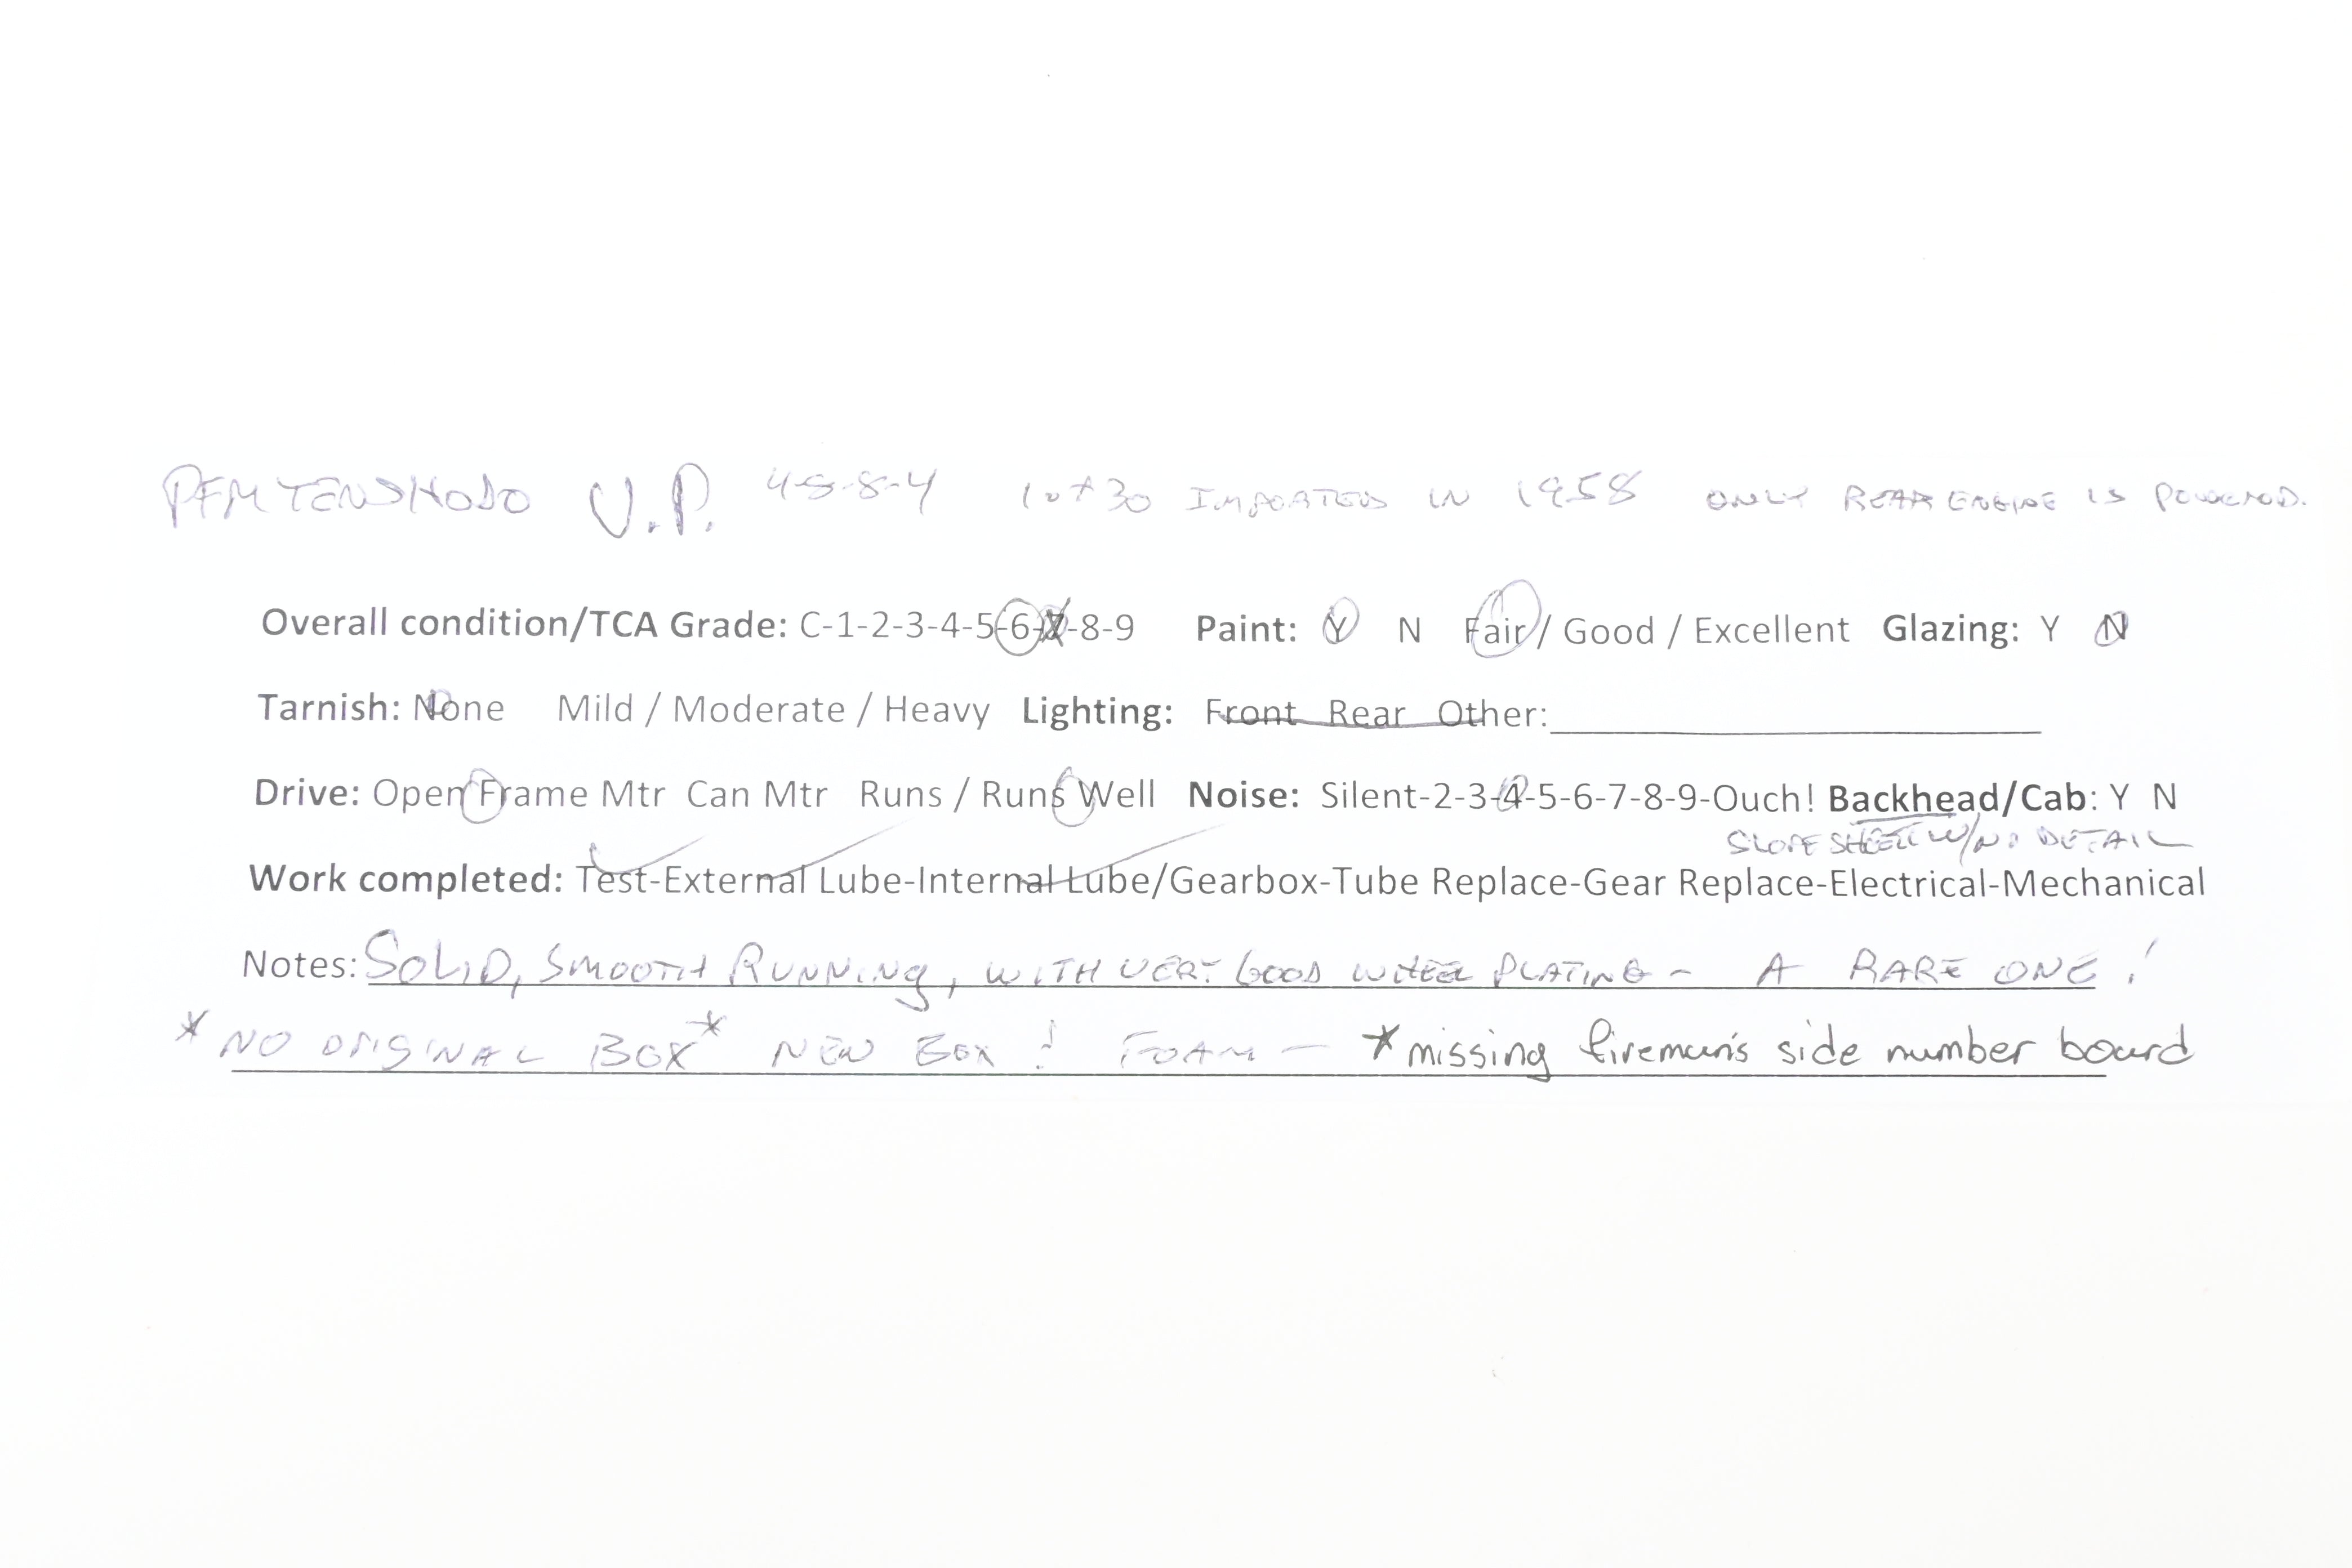 PFM TENSHODO U.P. 4-8-8-4 1 of 30 IMPORTED IN 1958 ONLY REAR ENGINE IS POWERED.
Overall condition/TCA Grade: C-1-2-3-4-5-6-7-8-9 Paint: Y N Fair / Good / Excellent Glazing: Y N
Tarnish: None Mild / Moderate / Heavy Lighting: Front Rear Other:
Drive: Open Frame Mtr Can Mtr Runs / Runs Well Noise: Silent-2-3-4-5-6-7-8-9-Ouch! Backhead/Cab: Y N
SLOPE SHEET W/NO DETAIL
Work completed: Test-External Lube-Internal Lube/Gearbox-Tube Replace-Gear Replace-Electrical-Mechanical
Notes: SOLID, SMOOTH RUNNING, WITH VERY GOOD WHEEL PLATING - A RARE ONE!
* NO ORIGINAL BOX * NEW BOX & FOAM - * missing fireman's side number board